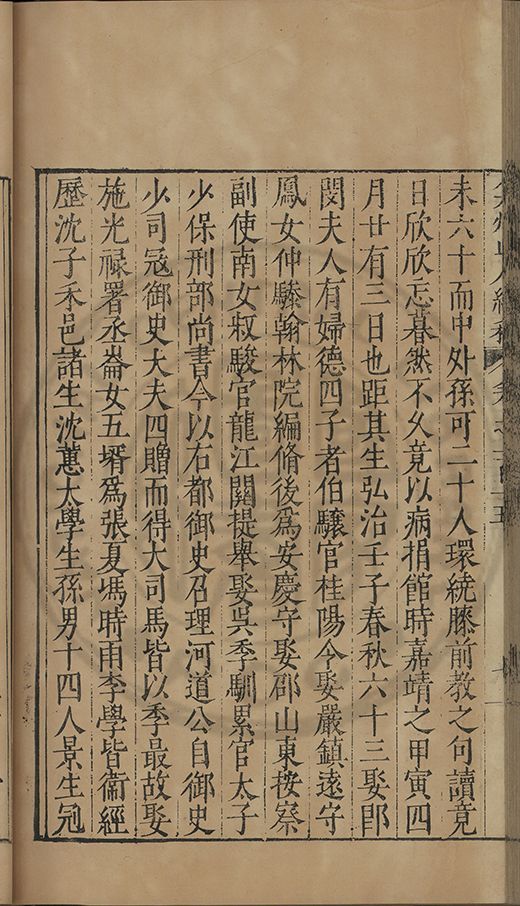 未六十而中外孫可二十人環繞膝前教之句讀竟
日欣欣忘暮然不久竟以病捐館時嘉靖之甲寅四
月廿有三日也距其生弘治壬子春秋六十三娶卽
閔夫人有婦德四子者伯驤官桂陽令娶嚴鎮遠守
鳳女仲驂翰林院編脩後爲安慶守娶邵山東按察
副使南女叔駿官龍江關提舉娶吳季馴累官太子
少保刑部尚書今以右都御史召理河道公自御史
少司寇御史大夫四贈而得大司馬皆以季最故娶
施光祿署丞崙女五壻爲張夏馮時雨李學皆衞經
歷沈子禾邑諸生沈蕙太學生孫男十四人景生冠